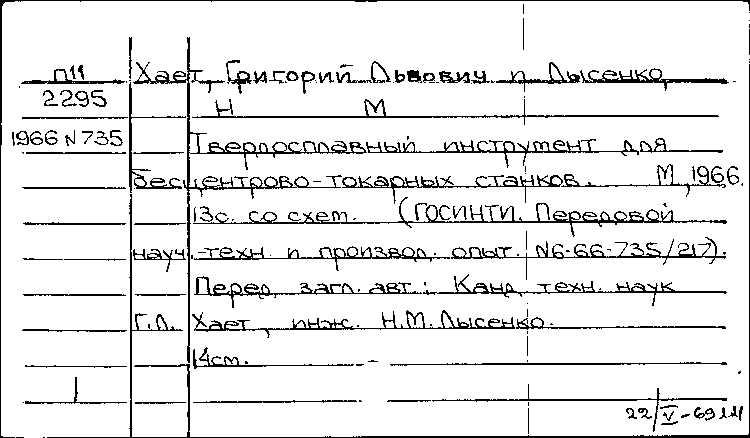 П11 Хает, Григорий Львович и Лысенко,
2295 Н М
1966 N 735 Твердосплавный инструмент для
бесцентрово-токарных станков. М, 1966.
13с. со схем. (ГОСИНТИ. Передовой
науч.-техн. и производ. опыт. N6-66-735/217).
Перед загл. авт.: Канд. техн. наук
Г.Л. Хает, инж. Н.М. Лысенко.
14см.
22/V-69